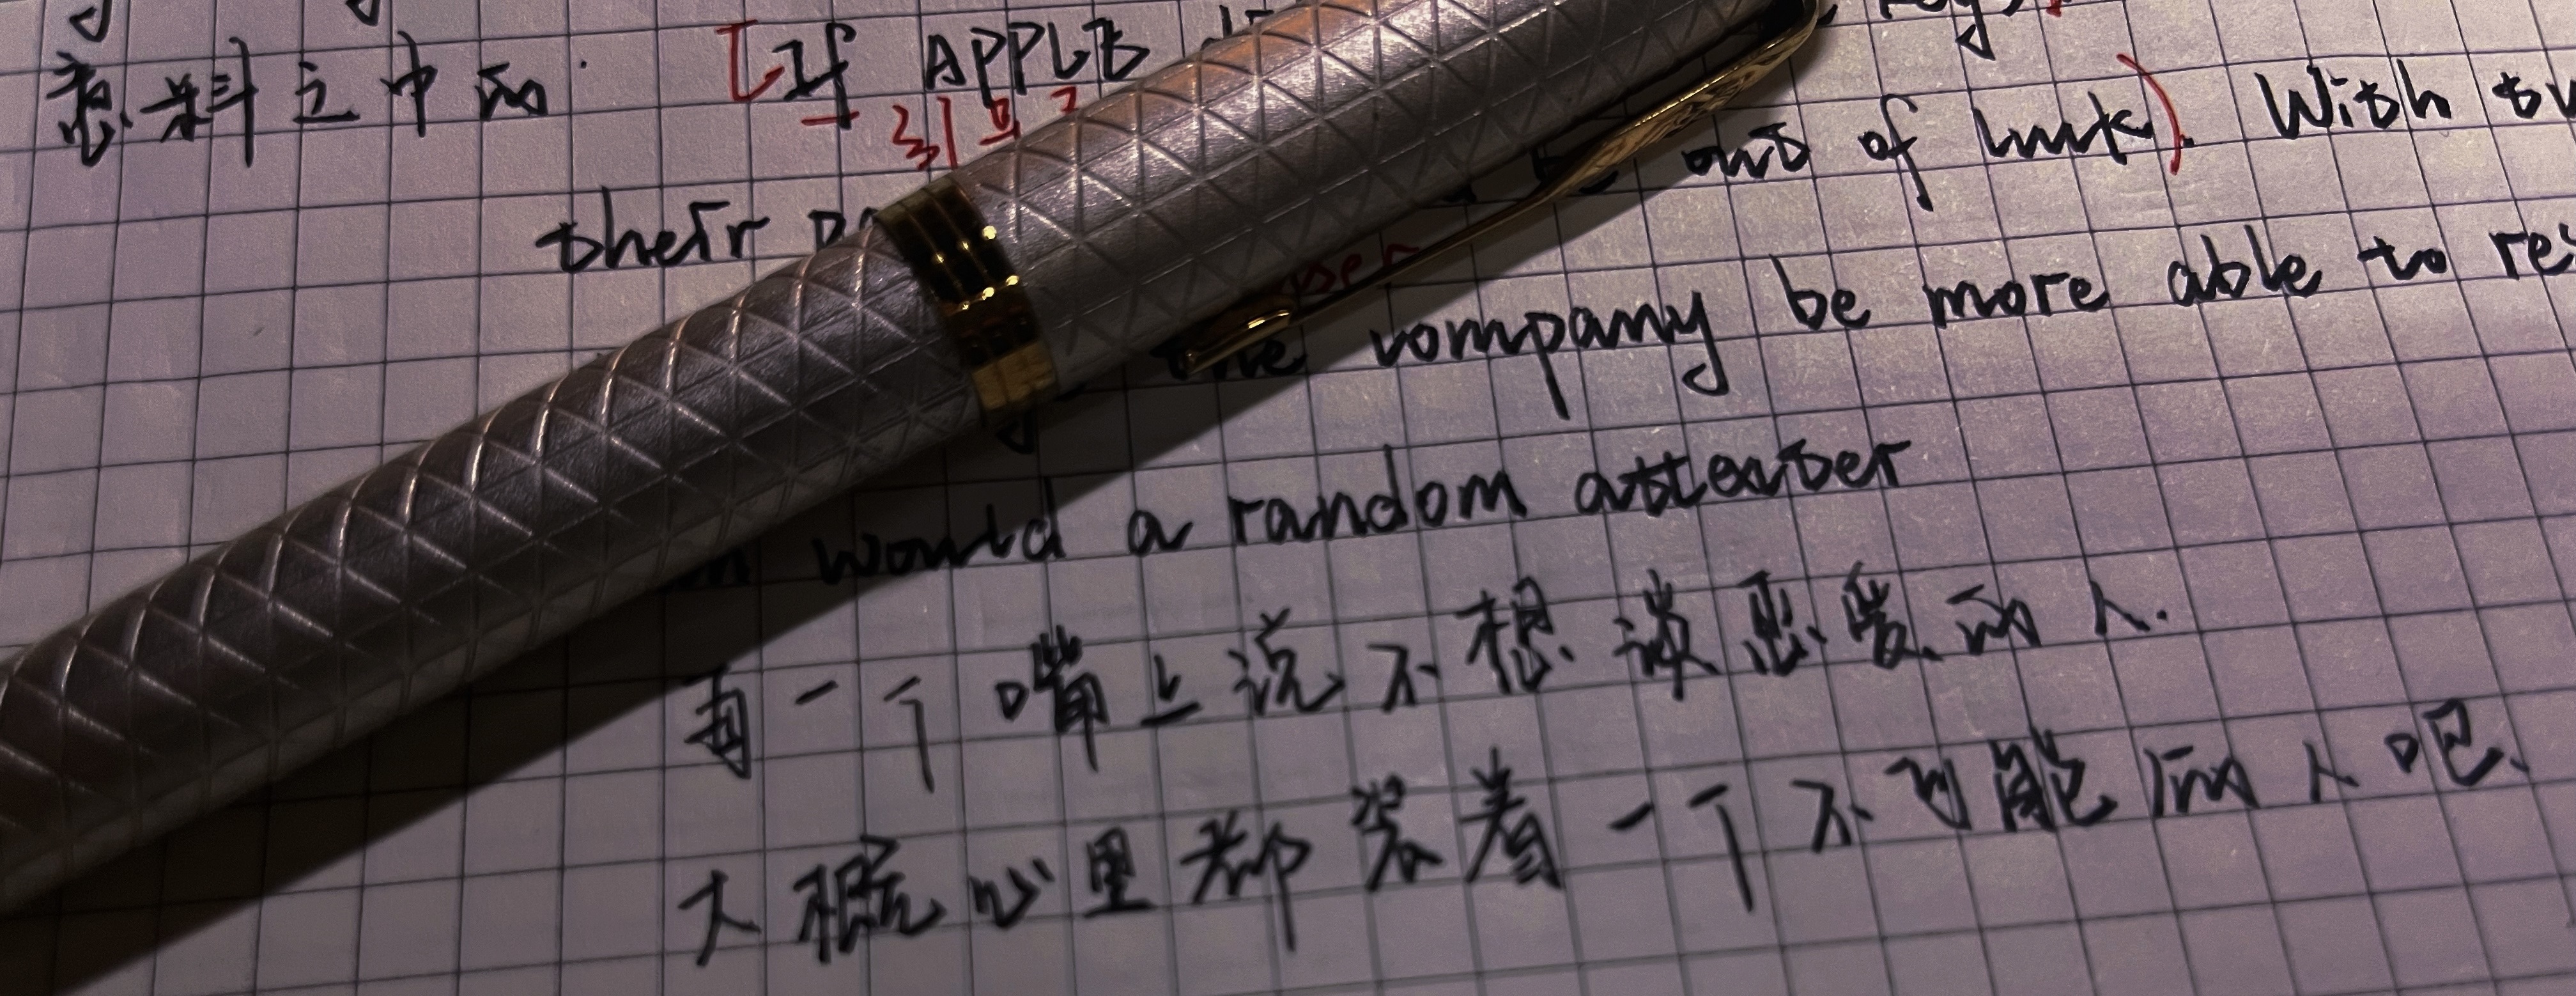 意料之中的. [If APPLE
引
out of luck). With
their
the company be more able to
would a random attenber
每一个嘴上说不想谈恋爱的人.
大概心里都装着一个不可能的人吧、